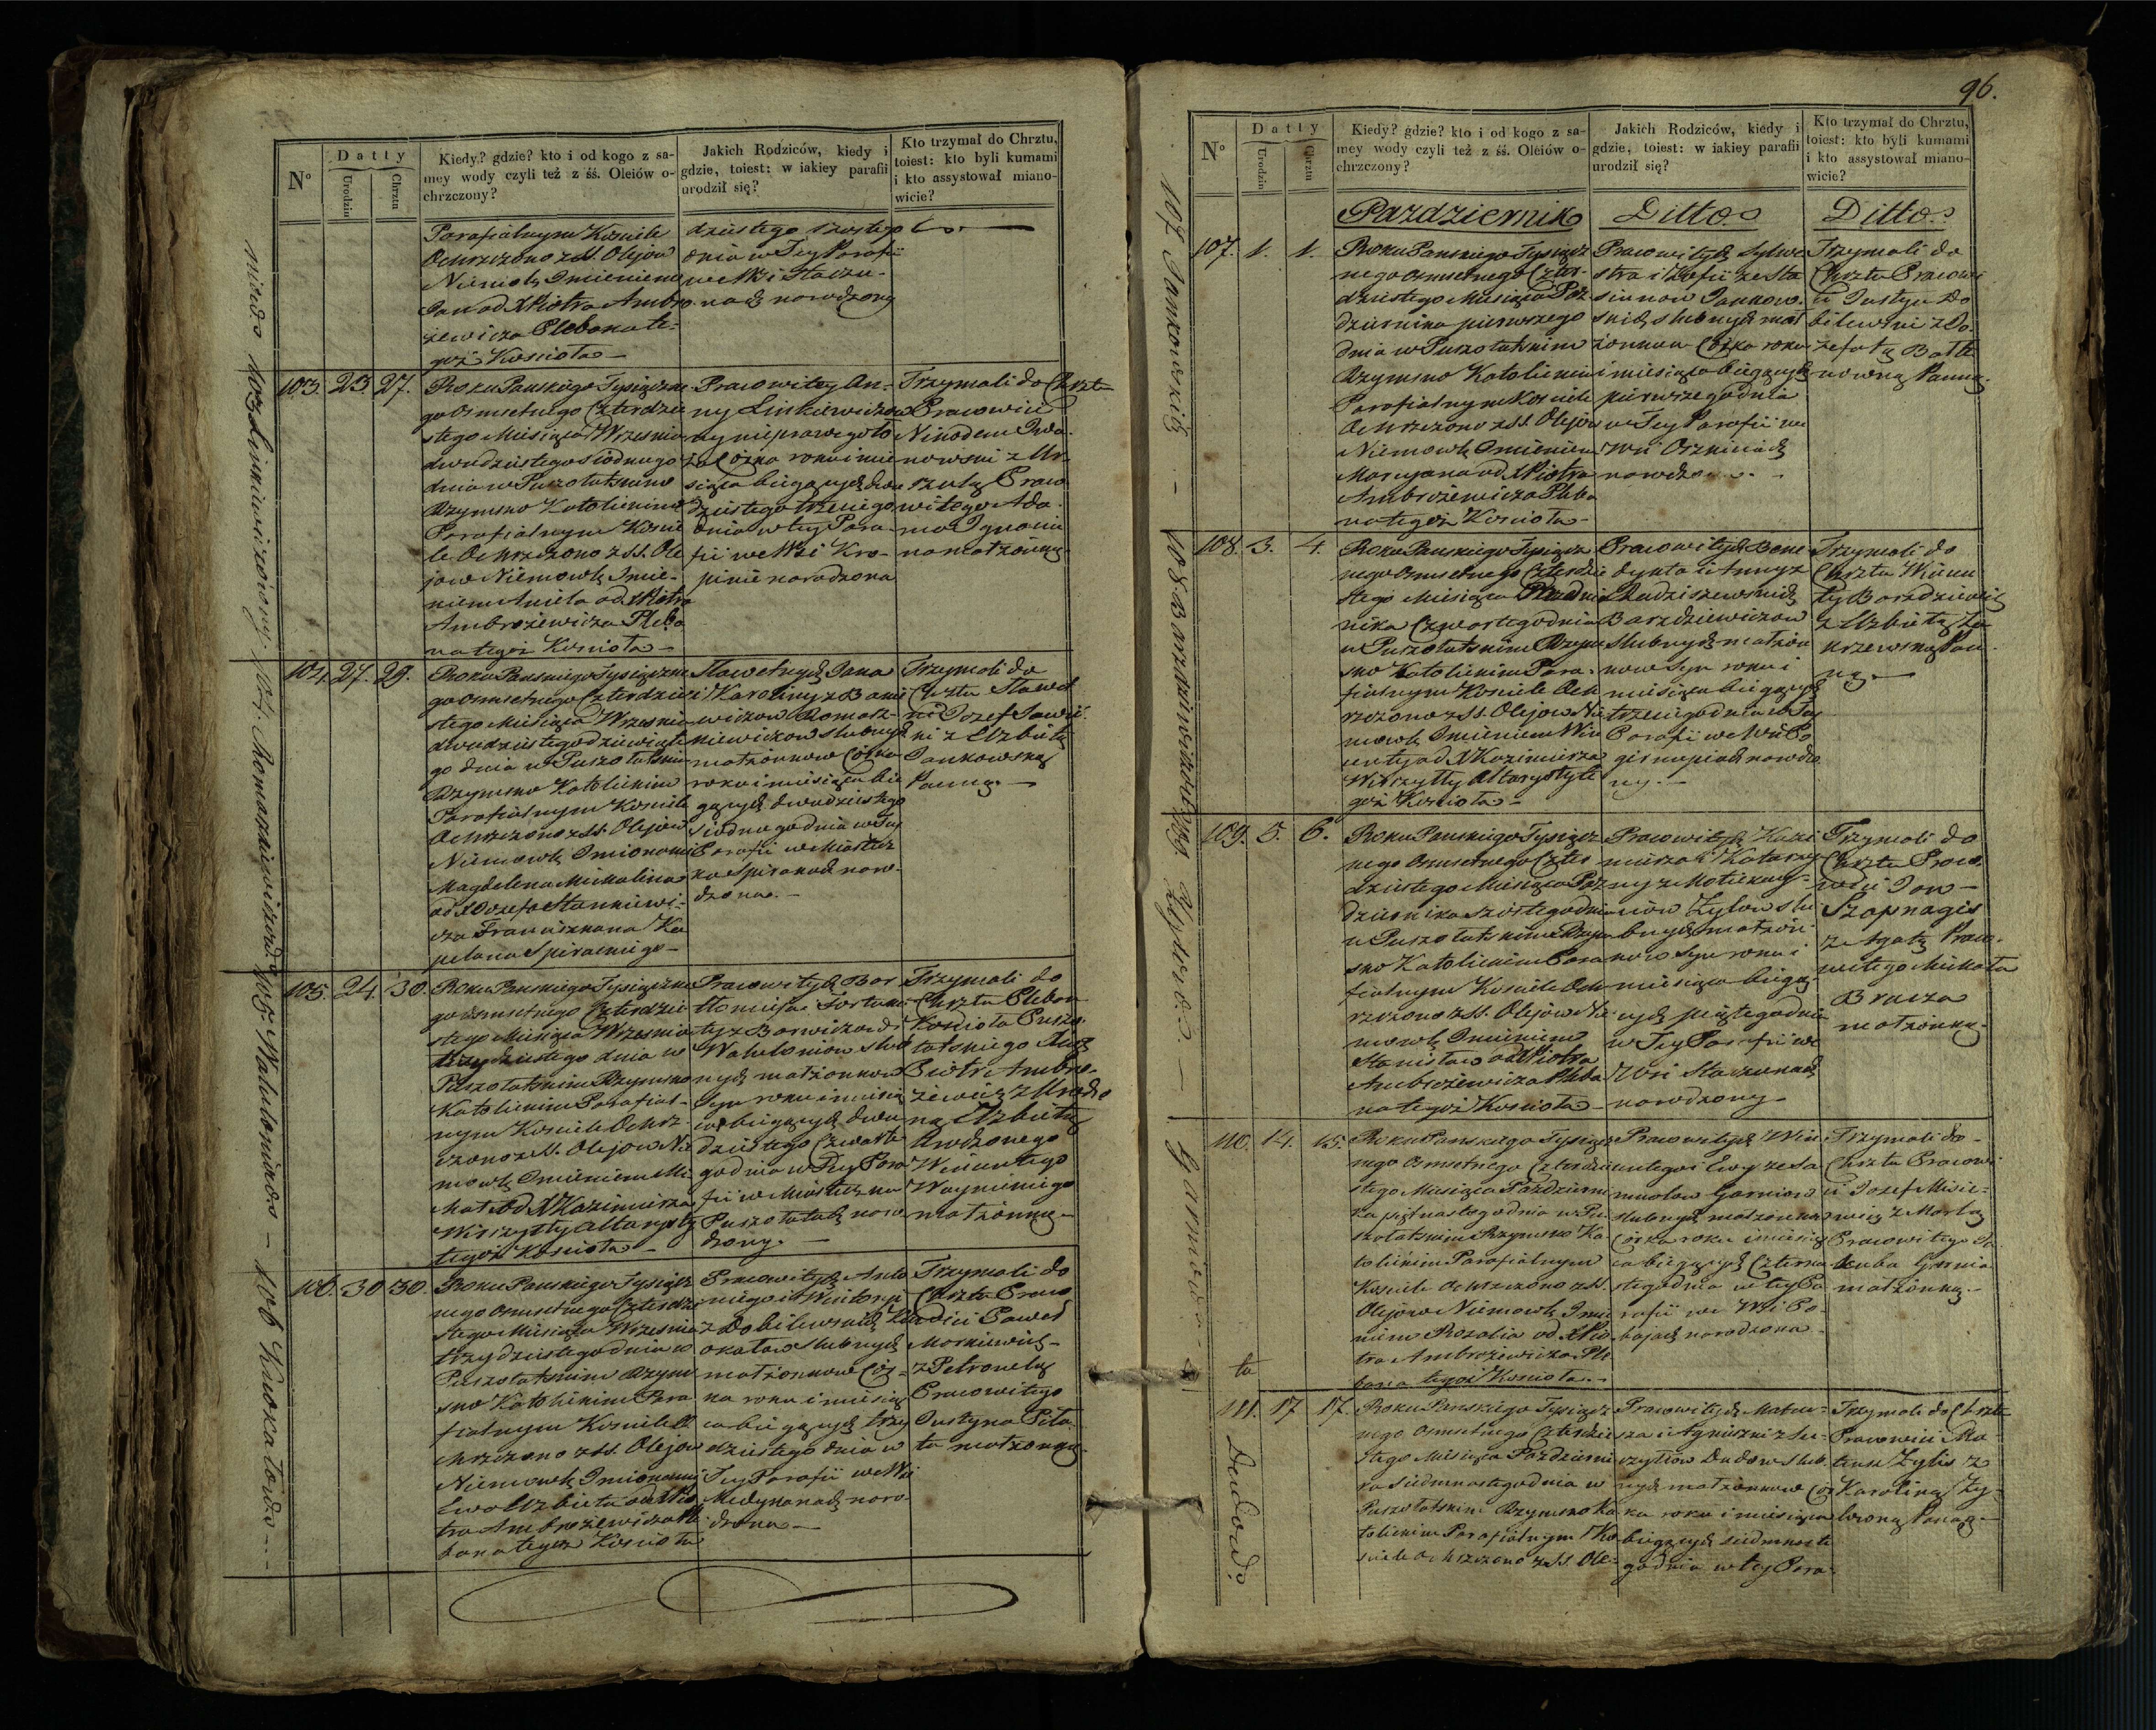 N°
Datty
Urodzin
Chrztu
Kiedy? gdzie? kto i od kogo z sa-
mey wody czyli też z śś. Oleiów o-
chrzczony?
Jakich Rodziców, kiedy i
gdzie, toiest: w iakiey parafii
urodził się?
Kto trzymał do Chrztu,
toiest: kto byli kumami
i kto assystował miano-
wicie?
Parafialnym Kosciele
Ochrzczono z SS. Olejow
Niemowle Imieniem
Jan od X Piotra Ambro
żewicza Plebana te-
goż Kosciola
dziestego szostego
dnia w Tey Parafii
we Wsi Staczu-
nach narodzony
103. 23. 27.
Roku Panskiego Tysiączne
go Osmsetnego Czterdzie
stego Miesiąca Wrzesnia
dwudziestego siodmego
dnia w Puszołatskim
Rzymsko Katolickim
Parafialnym Koscie
le Ochrzczono z SS. Ole
jow Niemowle Imie-
niem Aniela od X Piotra
Ambrożewicza Pleba
na tegoż Kosciola
Pracowitey An-
ny Linkiewiczow
ny nieprawego ło
ża Corka roku i mie
siąca biegących dwu
dziestego trzeciego
dnia w tey Para-
fii we Wsi Kro-
pinie narodzona
Trzymali do Chrztu
Pracowici
Nikodem Iwa-
nowski z Ur-
szulą Praco
witego Ada-
ma Ignacia
na małżonką
104. 27. 29.
Roku Panskiego Tysiączne
go Osmsetnego Czterdzie
stego Miesiąca Wrzesnia
dwudziestego dziewiąte
go dnia w Puszołatskim
Rzymsko Katolickim
Parafialnym Kosciele
Ochrzczono z SS. Olejow
Niemowle Imionami
Magdalena Michalina
od X Jozefa Stankiewi-
cza Franciszkana Ka
pelana Spirackiego
Sławetnych Jana
i Karoliny z Bani
wiczow Romasz-
kiewiczow slubnych
małżonkow Corka
roku i miesiąca bie
gących dwudziestego
siodmego dnia w Tey
Parafii w Miastecz
ku Spirakach naro-
dzona.
Trzymali do
Chrztu Sławet
ni Jozef Sawic
ki z Elzbietą
Jankowską
Panną.
105. 24. 30.
Roku Panskiego Tysiączne
go Osmsetnego Czterdzie
stego Miesiąca Wrzesnia
trzydziestego dnia w
Puszołatskim Rzymsko
Katolickim Parafial-
nym Kosciele Ochrz-
czono z SS. Olejow Nie
mowle Imieniem Mi
chał od X Kazimierza
Wirszytły Altarysty
tegoż Kosciola
Pracowitych Bar
tłomieja i Fortuna
ty z Barwiczow
Walulaniow slub
nych małżonkow
Syn roku i miesią
ca biegących dwu
dziestego czwarte
go dnia w Tey Para
fii w Miasteczku
Puszołatach naro
dzony.
Trzymali do
Chrztu Pleban
Kosciola Puszo-
łatskiego Xiądz
Piotr Ambro-
żewicz z Urodzo
ną Elzbietą
Urodzonego
Wincentego
Woynickiego
małżonką
106. 30 30.
Roku Panskiego Tysiącz
nego Osmsetnego Czterdzie
stego Miesiąca Wrzesnia
trzydziestego dnia w
Puszołatskim Rzym
sko Katolickim Para
fialnym Kosciele O
chrzczono z SS. Olejow
Niemowle Imionami
Ewa Elzbieta od X Pio
tra Ambrożewicza Ple
bana tegoż Kosciola
Pracowitych Anto
niego i Wiktoryi
z Dobilewskich Ku
okałow slubnych
małżonkow Cor-
ka roku i miesią
ca biegących trzy
dziestego dnia w
Tey Parafii we Wsi
Medykanach naro-
dzona
Trzymali do
Chrztu Praco
wici Paweł
Morkiewicz
z Petronelą
Pracowitego
Justyna Piła
ta małzonką
103 Linkiewiczowny
104. Romaszkiewiczow
105. Walulaniow
106 Kuokałow
96.
N°
Datty
Urodzin
Chrztu
Kiedy? gdzie? kto i od kogo z sa-
mey wody czyli też z śś. Oleiów o-
chrzczony?
Jakich Rodziców, kiedy i
gdzie, toiest: w iakiey parafii
urodził się?
Kto trzymał do Chrztu,
toiest: kto byli kumami
i kto assystował miano-
wicie?
Pazdziernik
Ditto
Ditto
107. 1. 1.
Roku Panskiego Tysiącz
nego Osmsetnego Czter-
dziestego Miesiąca Paz
dziernika pierwszego
dnia w Puszołatskim
Rzymsko Katolickim
Parafialnym Kosciele
Ochrzczono z SS. Olejow
Niemowle Imieniem
Maryana od X Piotra
Ambrożewicza Pleba
na tegoż Kosciola
Pracowitych Sylwe
stra i Zofii ze Sta
siunow Jankow-
skich slubnych mał
żonkow Corka roku
i miesiąca biegących
pierwszego dnia
w Tey Parafii we
Wsi Orzkinach
narodzo
Trzymali do
Chrztu Pracowi
ci Justyn Do
bilewski z Jo-
zefatą Batke
nowną Panną.
108. 3. 4.
Roku Panskiego Tysiącz
nego Osmsetnego Czterdzie
stego Miesiąca Pazdzier
nika Czwartego dnia
w Puszołatskim Rzym
sko Katolickim Para-
fialnym Kosciele Och
rzczono z SS. Olejow Nie
mowle Imieniem Win
centy od X Kazimierza
Wirszytły Altarysty te
goż Kosciola
Pracowitych Bene-
dykta i Anny z
Radziszewskich
Barzdziewiczow
Slubnych małżon
kow Syn roku i
miesiąca biegących
trzeciego dnia w Tey
Parafii we Wsi Po
girnupiach narodzo
ny.
Trzymali do
Chrztu Wincen
ty Barzdziewicz
z Elzbietą Za
krzewską Pan
ną.
109. 5. 6.
Roku Panskiego Tysiącz
nego Osmsetnego Czter
dziestego Miesiąca Paz
dziernika szostego dnia
w Puszołatskim Rzym
sko Katolickim Para
fialnym Kosciele Och
rzczono z SS. Olejow Nie
mowle Imieniem
Stanisław od X Piotra
Ambrożewicza Pleba
na tegoż Kosciola
Pracowitych Kazi
mierza i Katarzy
ny z Matiekuy-
niow Zylow slu
bnych małżon
kow Syn roku i
miesiąca biegą-
cych piątego dnia
w Tey Parafii we
Wsi Staczunach
narodzony
Trzymali do
Chrztu Praco
wici Jan
Szapnagis
z Agatą Praco-
witego Michała
Bracza
małżonką.
110. 14. 15.
Roku Panskiego Tysiącz
nego Osmsetnego Czterdzie
stego Miesiąca Pazdzierni
ka piętnastego dnia w Pu
szołatskim Rzymsko Ka
tolickim Parafialnym
Kosciele Ochrzczono z SS.
Olejow Niemowle Imie
niem Rozalia od X Pio
tra Ambrożewicza Ple
bana tegoż Kosciola
Pracowitych Win
centego i Ewy ze Sa
mułow Garniow
slubnych małżonkow
Corka roku i miesią
ca biegących Czterna
stego dnia w tey Pa
rafii we Wsi Po-
bojach narodzona
Trzymali do
Chrztu Pracowi
ci Jozef Mice-
wicz z Martą
Pracowitego Ja
kuba Garnia
małżonką.
111. 17 17.
Roku Panskiego Tysiącz
nego Osmsetnego Czterdzie
stego Miesiąca Pazdzierni
ka siedmnastego dnia w
Puszołatskim Rzymsko Ka
tolickim Parafialnym Ko
sciele Ochrzczono z SS. Ole-
Pracowitych Mateu-
sza i Agnieszki z Lu-
czytiow Dudow slub
nych małżonkow Cor
ka roku i miesiąca
biegących siedmnaste
go dnia w tey Para-
Trzymali do Chrztu
Pracowici Ma-
teusz Zylis z
Karoliną Zy-
lwoną Panną.
107 Jankowskich
108 Barzdziewiczow
Zylow
Garniow
Dudow